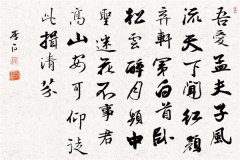 吾愛孟夫子風
流天下聞紅顔
弃軒冕白首卧
松雲醉月頻中
聖迷花不事君
高山安可仰徒
此揖清芬